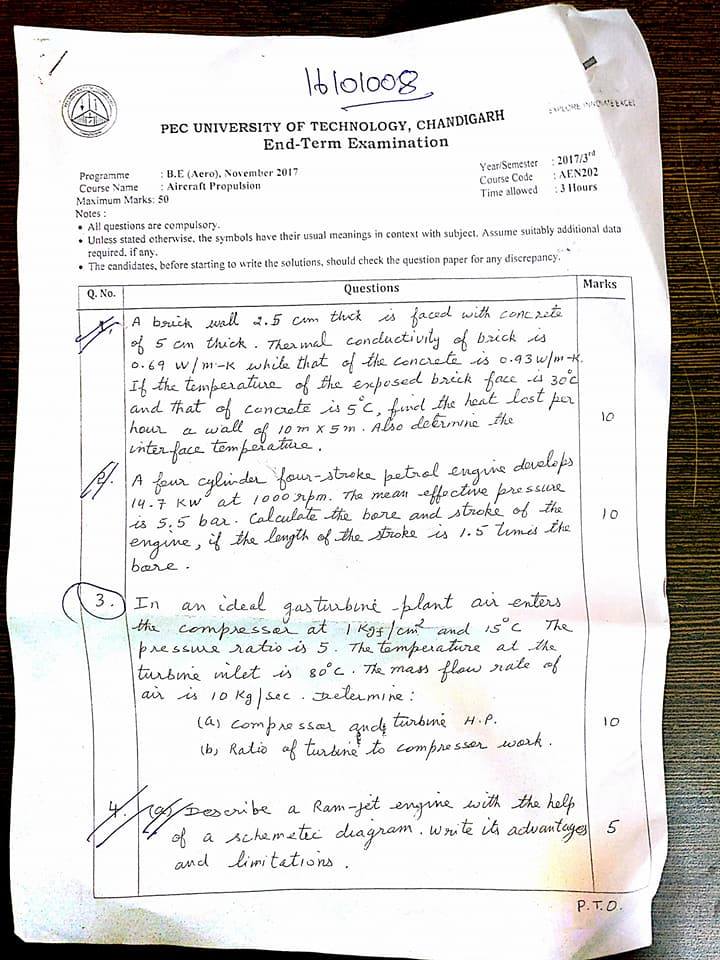 16101008
EXPLORE INNOVATE EXCEL
PEC UNIVERSITY OF TECHNOLOGY, CHANDIGARH
End-Term Examination
Programme : B.E (Aero), November 2017
Course Name : Aircraft Propulsion
Maximum Marks: 50
Year/Semester : 2017/3rd
Course Code : AEN202
Time allowed : 3 Hours
Notes :
• All questions are compulsory.
• Unless stated otherwise, the symbols have their usual meanings in context with subject. Assume suitably additional data
required, if any.
• The candidates, before starting to write the solutions, should check the question paper for any discrepancy.
Q. No. Questions Marks
1. A brick wall 2.5 cm thick is faced with concrete
of 5 cm thick. Thermal conductivity of brick is
0.69 W/m-K while that of the concrete is 0.93 W/m-K.
If the temperature of the exposed brick face is 30°C
and that of concrete is 5°C, find the heat lost per
hour a wall of 10m x 5m. Also determine the 10
interface temperature.
2. A four cylinder four-stroke petrol engine develops
14.7 KW at 1000 rpm. The mean effective pressure
is 5.5 bar. Calculate the bore and stroke of the 10
engine, if the length of the stroke is 1.5 times the
bore.
3. In an ideal gasturbine plant air enters
the compressor at 1 Kgf/cm² and 15°C The
pressure ratio is 5. The temperature at the
turbine inlet is 80°C. The mass flow rate of
air is 10 Kg/sec. Determine:
(a) Compressor and turbine H.P. 10
(b) Ratio of turbine to compressor work.
4. (a) Describe a Ram-jet engine with the help
of a schemetic diagram. Write its advantages 5
and limitations.
P.T.O.